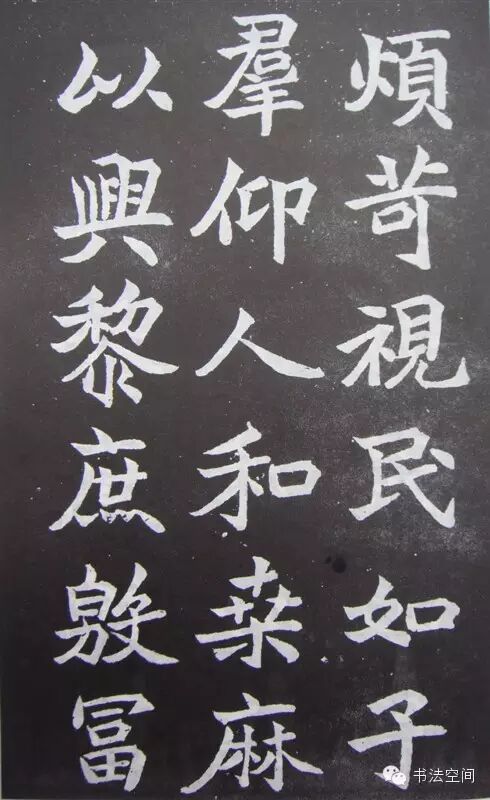 煩苛視民如子
羣仰人和桒麻
以興黎庶敫冨
书法空间